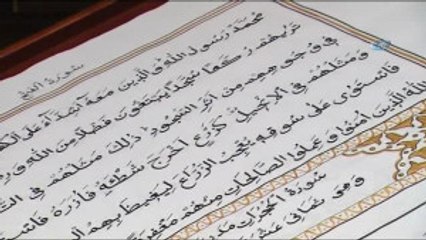 سورة الفتح
محمد رسول الله والذين معه أشداء على
تريهم ركعا سجدا يبتغون فضلا من الله
في وجوههم من أثر السجود ذلك مثلهم في
ومثلهم في الإنجيل كزرع أخرج شطئه فآزره
فاستوى على سوقه يعجب الزراع ليغيظ بهم
الله الذين آمنوا وعملوا الصالحات منهم مغفرة
سورة الحجرات
وهي ثماني عشرة